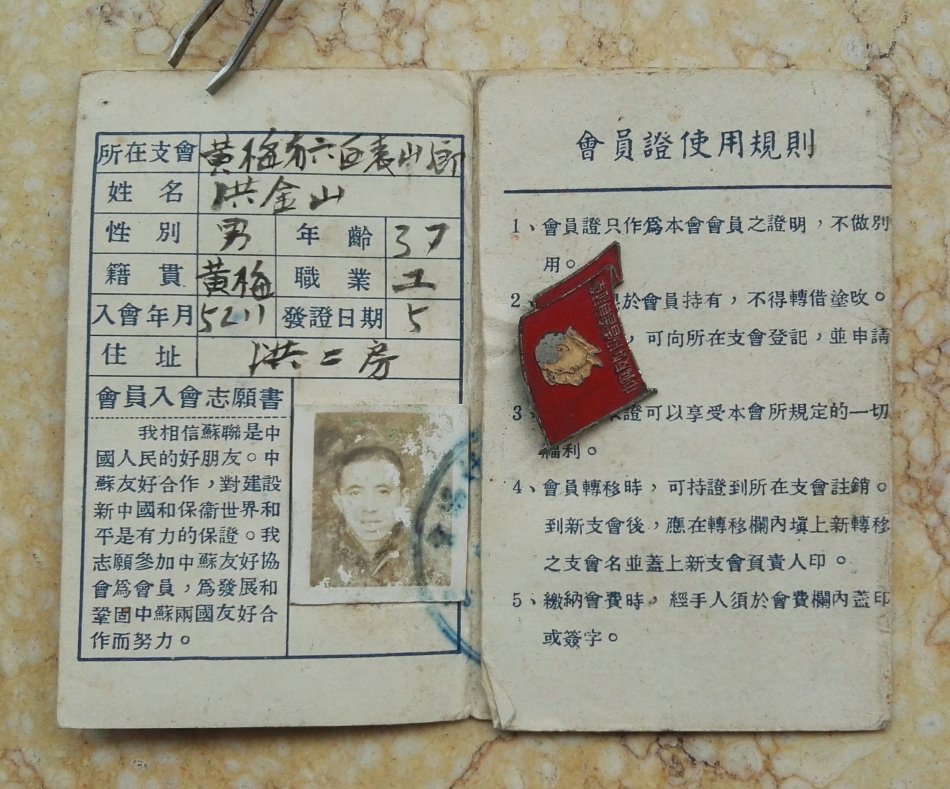 所在支會 黃梅第六區袁山鄉
姓 名 洪金山
性 別 男 年 齡 37
籍 貫 黃梅 職 業 工
入會年月 5211 發證日期 5
住 址 洪二房
會員入會志願書
我相信蘇聯是中
國人民的好朋友。中
蘇友好合作,對建設
新中國和保衞世界和
平是有力的保證。我
志願參加中蘇友好協
會爲會員,爲發展和
鞏固中蘇兩國友好合
作而努力。
會員證使用規則
1、會員證只作爲本會會員之證明,不做別
用。
2、於會員持有,不得轉借塗改。
,可向所在支會登記,並申請
3、證可以享受本會所規定的一切
福利。
4、會員轉移時,可持證到所在支會註銷。
到新支會後,應在轉移欄內填上新轉移
之支會名並蓋上新支會負責人印。
5、繳納會費時,經手人須於會費欄內蓋印
或簽字。